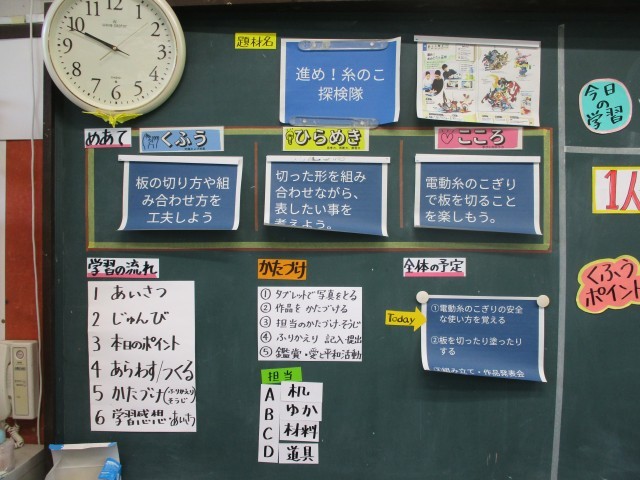 題材名
進め！糸のこ
探検隊
めあて
くふう
ひらめき
こころ
板の切り方や組
み合わせ方を
工夫しよう
切った形を組み
合わせながら、
表したい事を
考えよう。
電動糸のこぎり
で板を切ること
を楽しもう。
今日の
学習
1人
くふう
ポイント
学習の流れ
1 あいさつ
2 じゅんび
3 本日のポイント
4 あらわす/つくる
5 かたづけ(ふりかえり そうじ)
6 学習感想・あいさつ
かたづけ
① タブレットで写真をとる
② 作品をかたづける
③ 担当のかたづけ・そうじ
④ ふりかえり 記入・提出
⑤ 鑑賞・愛と平和活動
担当
A 札
B ゆか
C 材料
D 道具
全体の予定
Today
①電動糸のこぎりの安全
な使い方を覚える
②板を切ったり塗ったり
する
③組み立て・作品発表会